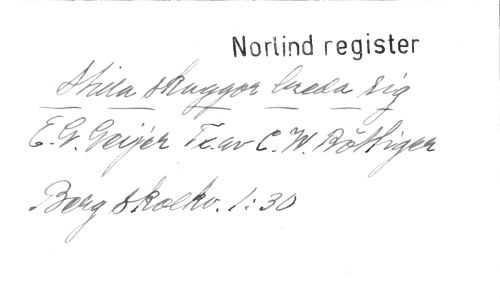 Norlind register
Stilla skuggor breda sig
E.G. Geijer Tx. av C.W. Böttiger
Berg skolkv. 1:30